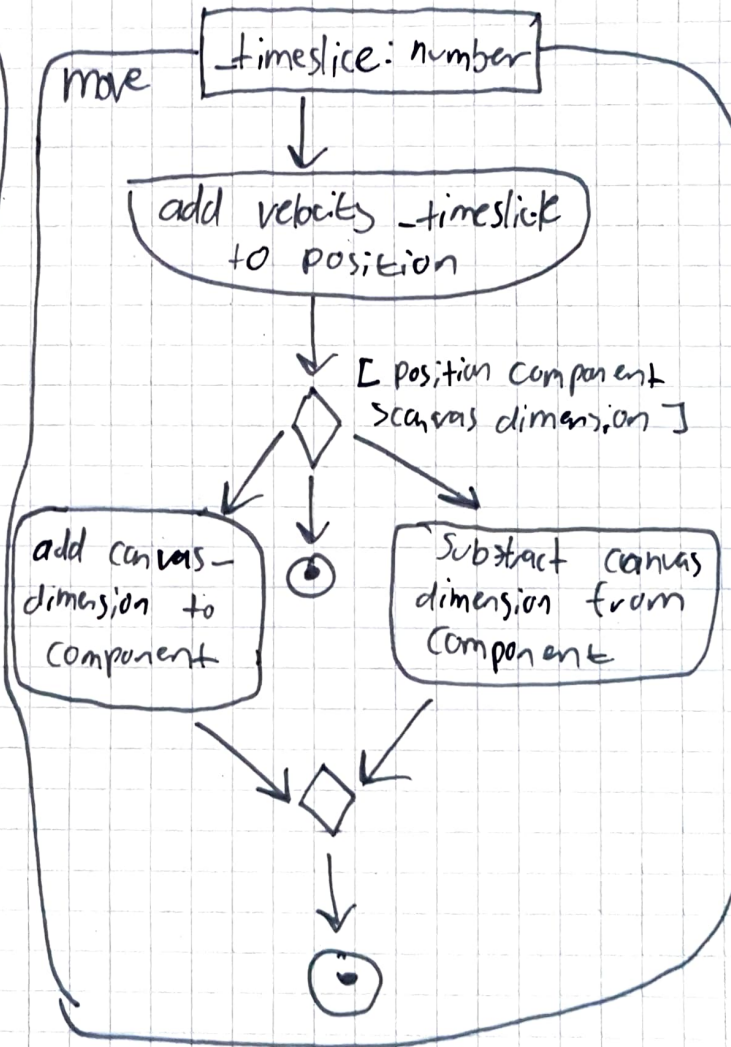 _timeslice: number
move
add velocity _timeslick
to position
[ position component
>canvas dimension ]
add canvas-
dimension to
component
Substract canvas
dimension from
Component